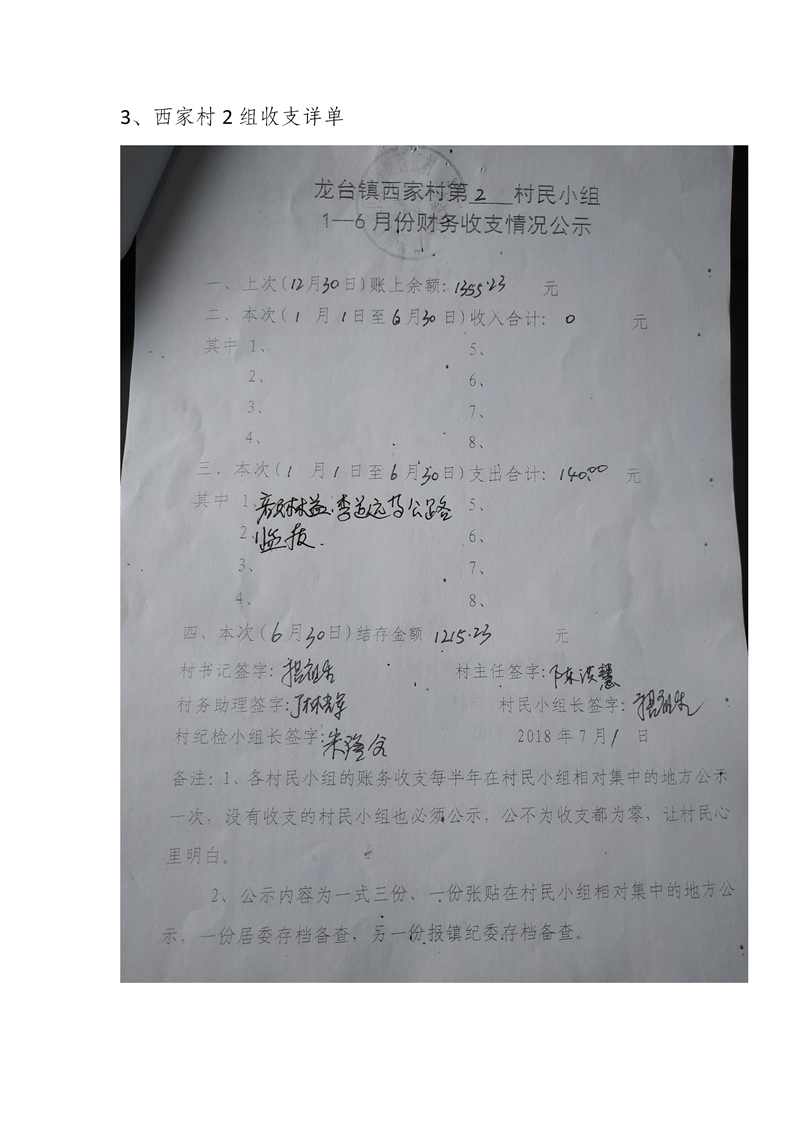 3、西家村 2 组收支详单
龙台镇西家村第 2 村民小组
1—6 月份财务收支情况公示
一、上次(12月30日)账上余额: 1355.23 元
二、本次(1 月 1日至 6月30日)收入合计: 0 元
其中 1、 5、
2、 6、
3、 7、
4、 8、
三、本次(1 月 1日至 6月30日)支出合计: 140.00 元
其中 1、李道远等公路 5、
2、监技. 6、
3、 7、
4、 8、
四、本次(6月30日)结存金额 1215.23 元
村书记签字: 村主任签字:陈洪慧
村务助理签字: 村民小组长签字:
村纪检小组长签字: 2018 年 7 月 1 日
备注: 1、各村民小组的账务收支每半年在村民小组相对集中的地方公示
一次, 没有收支的村民小组也必须公示, 公不为收支都为零, 让村民心
里明白。
2、公示内容为一式三份、一份张贴在村民小组相对集中的地方公
示, 一份居委存档备查, 另一份报镇纪委存档备查。